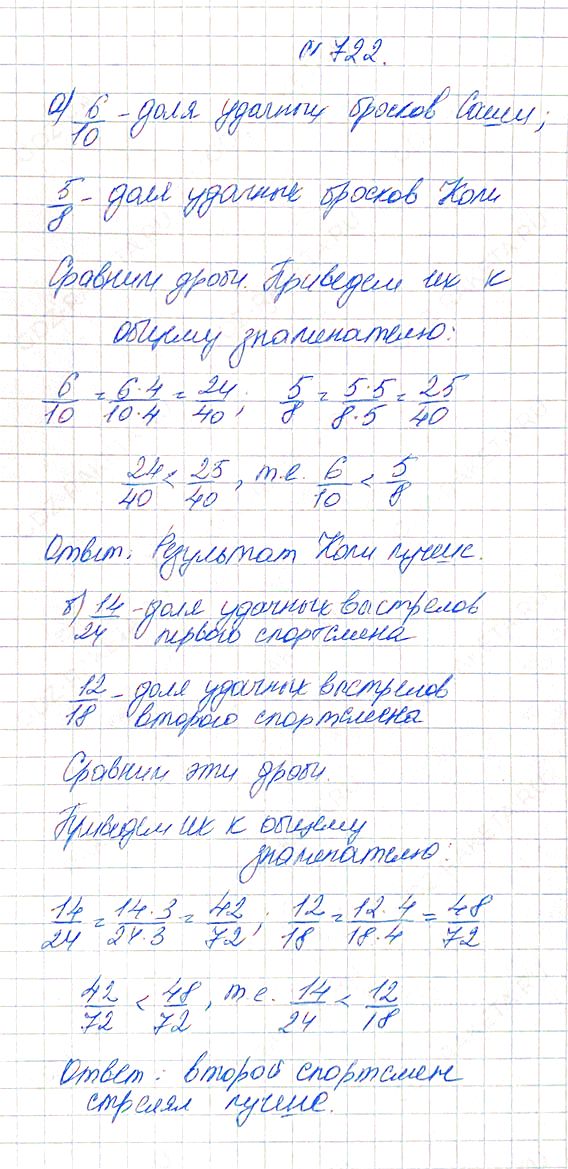 № 722.
а) 6/10 - доля удачных бросков Саши;
5/8 - доля удачных бросков Коли
Сравним дроби. Приведем их к
общему знаменателю:
6/10 = 6·4/10·4 = 24/40; 5/8 = 5·5/8·5 = 25/40
24/40 < 25/40, т.е. 6/10 < 5/8
Ответ. Результат Коли лучше.
б) 14/24 - доля удачных выстрелов
первого спортсмена
12/18 - доля удачных выстрелов
второго спортсмена
Сравним эти дроби.
Приведем их к общему
знаменателю:
14/24 = 14·3/24·3 = 42/72; 12/18 = 12·4/18·4 = 48/72
42/72 < 48/72, т.е. 14/24 < 12/18
Ответ: второй спортсмен
стрелял лучше.